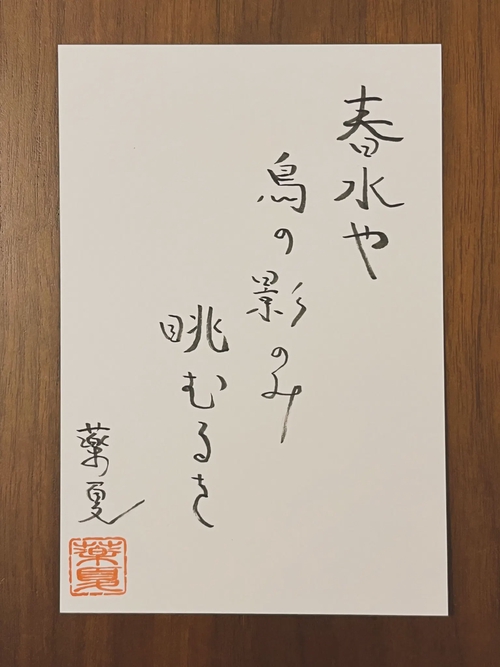 春水や
鳥の影のみ
眺むるさ
薬夏
薬夏